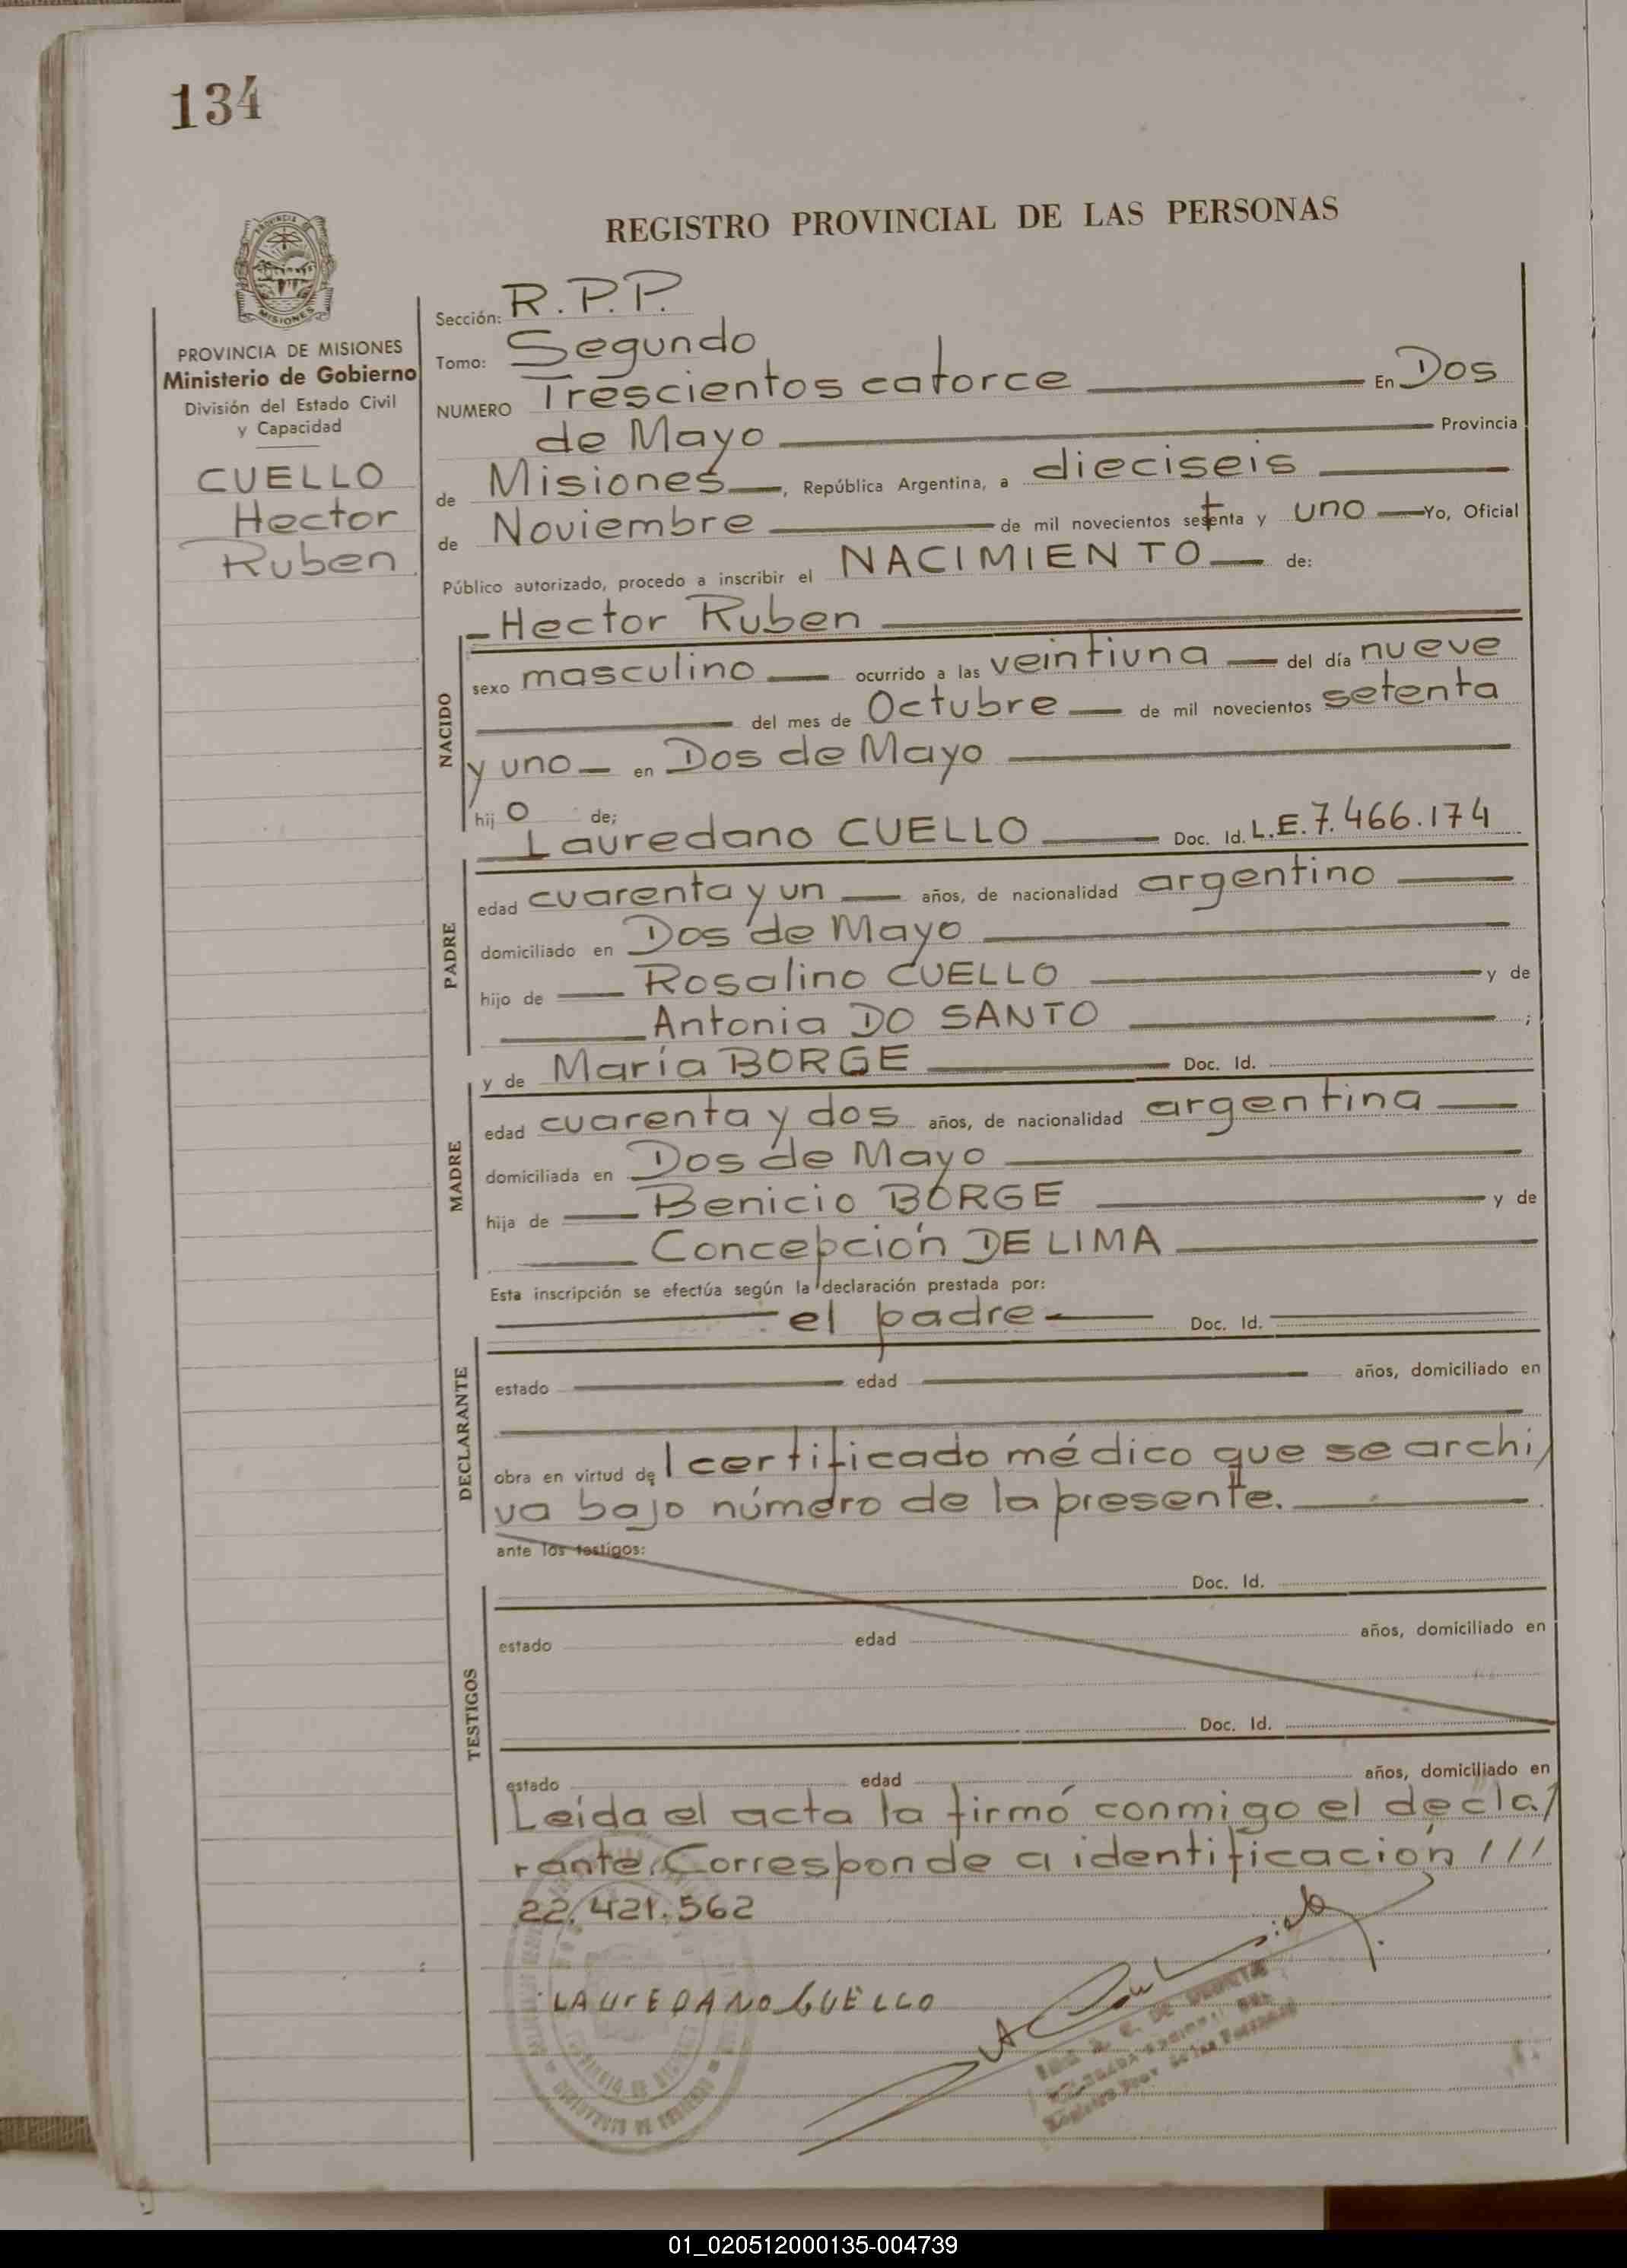 134
REGISTRO PROVINCIAL DE LAS PERSONAS
PROVINCIA
MISIONES
PROVINCIA DE MISIONES
Ministerio de Gobierno
División del Estado Civil
y Capacidad
CUELLO
Hector
Ruben
Sección: R.P.P.
Tomo: Segundo
NUMERO Trescientos catorce En Dos
de Mayo Provincia
de Misiones, República Argentina, a dieciseis
de Noviembre de mil novecientos setenta y uno Yo, Oficial
Público autorizado, procedo a inscribir el NACIMIENTO de:
Hector Ruben
NACIDO
sexo masculino ocurrido a las veintiuna del día nueve
del mes de Octubre de mil novecientos setenta
y uno en Dos de Mayo
hij o de;
Lauredano CUELLO Doc. Id. L.E. 7.466.174
PADRE
edad cuarenta y un años, de nacionalidad argentino
domiciliado en Dos de Mayo
hijo de Rosalino CUELLO y de
Antonia DO SANTO ;
y de María BORGE Doc. Id.
MADRE
edad cuarenta y dos años, de nacionalidad argentina
domiciliada en Dos de Mayo
hija de Benicio BORGE y de
Concepción DE LIMA
Esta inscripción se efectúa según la declaración prestada por:
el padre Doc. Id.
DECLARANTE
estado edad años, domiciliado en
obra en virtud de l certificado médico que se archi/
va bajo número de la presente.
ante los testigos:
Doc. Id.
TESTIGOS
estado edad años, domiciliado en
Doc. Id.
estado edad años, domiciliado en
Leida el acta la firmó conmigo el decla/
rante. Corresponde a identificación ///
22.421.562
LAUrEDANO CUELLO
01_020512000135-004739